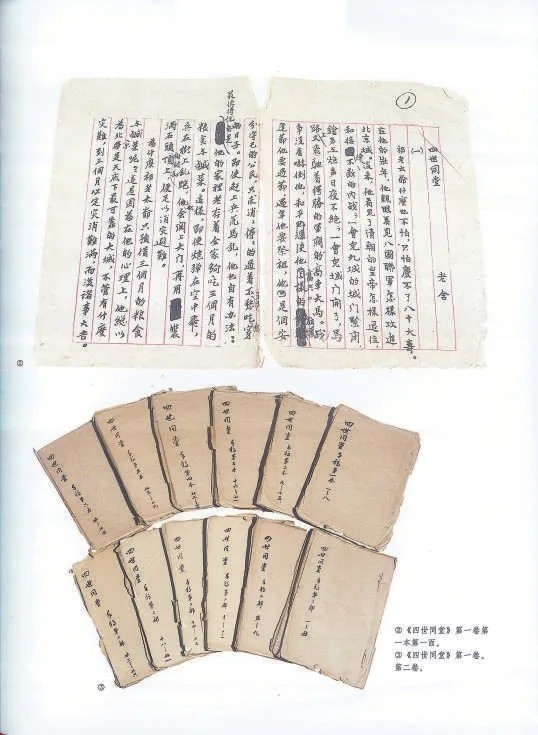 ①
四世同堂
老舍
(一)
祁老太爺什麼也不怕,只怕慶不了八十大壽。
在他的壯年,他親眼看見八國聯軍怎樣攻進
北京城。後來,他看見了清朝的皇帝怎樣退位,
和接 不斷的內戰;一會兒九城的城門緊閉,
鎗聲與炮聲日夜不絕;一會兒城門開了,馬
路上又飛馳着得勝的軍閥的高車大馬。戰
爭沒有嚇倒他,和平使他
逢節他要過節,遇年他要祭祖,他是個安
分守己的公民,只求消消停停的過着不愁吃穿
的日子。即使趕上兵荒馬亂,他也自有辦法:
最值得說的是
他的家裡老存着全家夠吃三個月的
糧食與鹹菜。這樣,即使炮彈在空中飛,
兵在街上亂跑,他會關上大門,再用 裝
滿石頭的破缸頂上,便足以消災避難。
為什麼祁老太爺只預備三個月的糧食
與鹹菜呢?這是因為在他的心理上,他總以
為北平是天底下最可靠的大城,不管有什麼
災難,到三個月必定災消難滿,而後諸事大吉。
②
四世同堂
四世同堂
四世同堂
四世同堂
四世同堂
四世同堂 一—八
四世同堂
四世同堂
四世同堂
四世同堂
四世同堂
四世同堂
③
②《四世同堂》第一卷第
一本第一页。
③《四世同堂》第一卷、
第二卷。